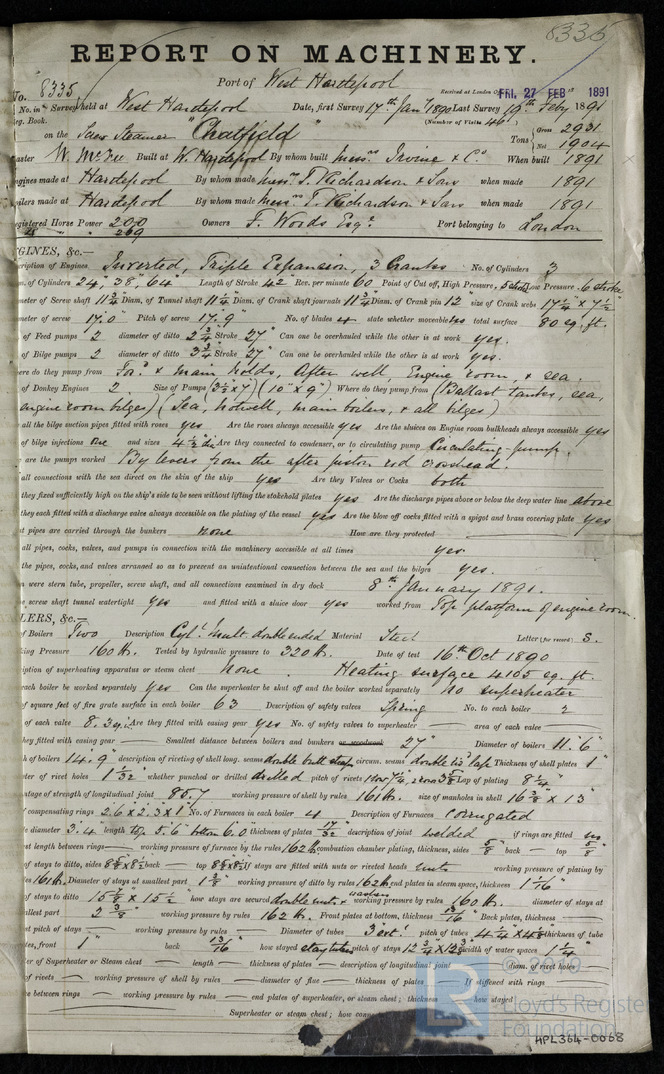 8335
REPORT ON MACHINERY.
Port of West Hartlepool
No. 8335 Received at London FRI. 27 FEB 1891
No. in Survey held at West Hartlepool Date, first Survey 17th Jany 1890 Last Survey 19th Feby 1891
eg. Book. (Number of Visits 46)
on the Screw Steamer "Chatfield" Tons Gross 2931 Net 1904
aster W. McFee Built at W. Hartlepool By whom built Messrs Irvine & Co. When built 1891
ngines made at Hartlepool By whom made Messrs T. Richardson & Sons when made 1891
oilers made at Hartlepool By whom made Messrs T. Richardson & Sons when made 1891
egistered Horse Power 200 Owners F. Woods Esqr. Port belonging to London
269
GINES, &c.—
cription of Engines Inverted, Triple Expansion, 3 Cranks No. of Cylinders 3
m. of Cylinders 24", 38", 64 Length of Stroke 42 Rev. per minute 60 Point of Cut off, High Pressure, Low Pressure .6 stroke
meter of Screw shaft 11 3/4 Diam. of Tunnel shaft 11 1/4 Diam. of Crank shaft journals 11 3/4 Diam. of Crank pin 12" size of Crank webs 17 1/4 x 7 1/2"
meter of screw 17.0" Pitch of screw 17.9" No. of blades 4 state whether moveable no total surface 80 sq. ft.
of Feed pumps 2 diameter of ditto 2 3/4" Stroke 27" Can one be overhauled while the other is at work yes.
of Bilge pumps 2 diameter of ditto 3 3/4" Stroke 27" Can one be overhauled while the other is at work yes.
ere do they pump from For'd & main holds, After well, Engine room, & sea.
of Donkey Engines 2. Size of Pumps (3 1/2" x 7") (10" x 9") Where do they pump from (Ballast tanks, sea,
engine room bilges) (Sea, hotwell, main boilers, & all bilges)
all the bilge suction pipes fitted with roses yes Are the roses always accessible yes Are the sluices on Engine room bulkheads always accessible yes
of bilge injections one and sizes 4 1/2" dia Are they connected to condenser, or to circulating pump Circulating pump.
are the pumps worked By levers from the after piston rod crosshead.
all connections with the sea direct on the skin of the ship yes Are they Valves or Cocks both
they fixed sufficiently high on the ship's side to be seen without lifting the stokehold plates yes Are the discharge pipes above or below the deep water line above
they each fitted with a discharge valve always accessible on the plating of the vessel yes Are the blow off cocks fitted with a spigot and brass covering plate yes
at pipes are carried through the bunkers none How are they protected
all pipes, cocks, valves, and pumps in connection with the machinery accessible at all times yes.
the pipes, cocks, and valves arranged so as to prevent an unintentional connection between the sea and the bilges yes.
n were stern tube, propeller, screw shaft, and all connections examined in dry dock 8th January 1891.
e screw shaft tunnel watertight yes and fitted with a sluice door yes worked from Top platform of engine room.
LERS, &c.—
of Boilers Two Description Cyl. mult. double ended Material Steel Letter (for record) S.
king Pressure 160 lb. Tested by hydraulic pressure to 320 lb. Date of test 16th Oct 1890
ription of superheating apparatus or steam chest none. Heating surface 4105 sq. ft.
each boiler be worked separately yes Can the superheater be shut off and the boiler worked separately no superheater
of square feet of fire grate surface in each boiler 63 Description of safety valves Spring No. to each boiler 2
of each valve 8.3 sq. in. Are they fitted with easing gear yes No. of safety valves to superheater — area of each valve —
they fitted with easing gear — Smallest distance between boilers and bunkers or woodwork 27" Diameter of boilers 11.6"
h of boilers 14.9" description of riveting of shell long. seams double butt strap circum. seams double riv. laps Thickness of shell plates 1"
ter of rivet holes 1 1/32" whether punched or drilled drilled pitch of rivets Lap of plating 8 1/4"
ntage of strength of longitudinal joint 85.7 working pressure of shell by rules 161 lb. size of manholes in shell 16 3/8" x 13"
f compensating rings 2.6 x 2.3 x 1" No. of Furnaces in each boiler 4 Description of Furnaces corrugated
e diameter 3.4 length top 5.6" bottom 6.0 thickness of plates 17/32" description of joint welded if rings are fitted no
est length between rings — working pressure of furnace by the rules 162 lb. combustion chamber plating, thickness, sides 5/8" back — top 5/8"
of stays to ditto, sides back — top stays are fitted with nuts or riveted heads nuts working pressure of plating by
les 161 lb. Diameter of stays at smallest part 1 3/8" working pressure of ditto by rules 162 lb. end plates in steam space, thickness 1 1/16"
of stays to ditto 15 7/8" x 15 1/2" how stays are secured double nuts & washers working pressure by rules 160 lb. diameter of stays at
allest part 2 3/8" working pressure by rules 162 lb. Front plates at bottom, thickness 13/16" Back plates, thickness —
st pitch of stays — working pressure by rules — Diameter of tubes 3" ext. pitch of tubes thickness of tube
ates, front 1" back 13/16" how stayed stay tubes pitch of stays width of water spaces
er of Superheater or Steam chest — length — thickness of plates — description of longitudinal joint diam. of rivet holes
of rivets — working pressure of shell by rules — diameter of flue — thickness of plates — If stiffened with rings
e between rings — working pressure by rules — end plates of superheater, or steam chest; thickness how stayed
Superheater or steam chest; how
© 2019
LR Lloyd's Register
Foundation
HPL364-0068